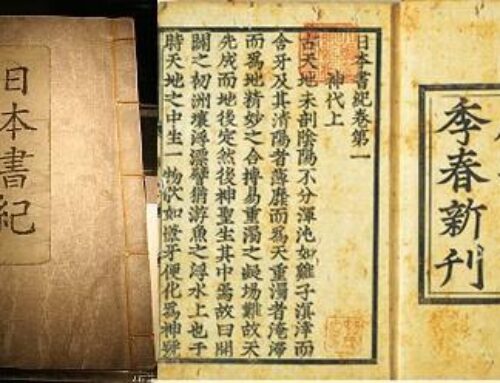 日本書紀
日本書紀卷第一
神代上
古天地未剖陰陽不分渾沌如雞子溟涬而
含牙及其清陽者薄靡而爲天重濁者淹滯
而爲地精妙之合搏易重濁之凝場難故天
先成而地後定然後神聖生其中焉故曰開
闢之初洲壤浮漂譬猶游魚之浮水上也于
時天地之中生一物狀如葦牙便化爲神號
季春新刊